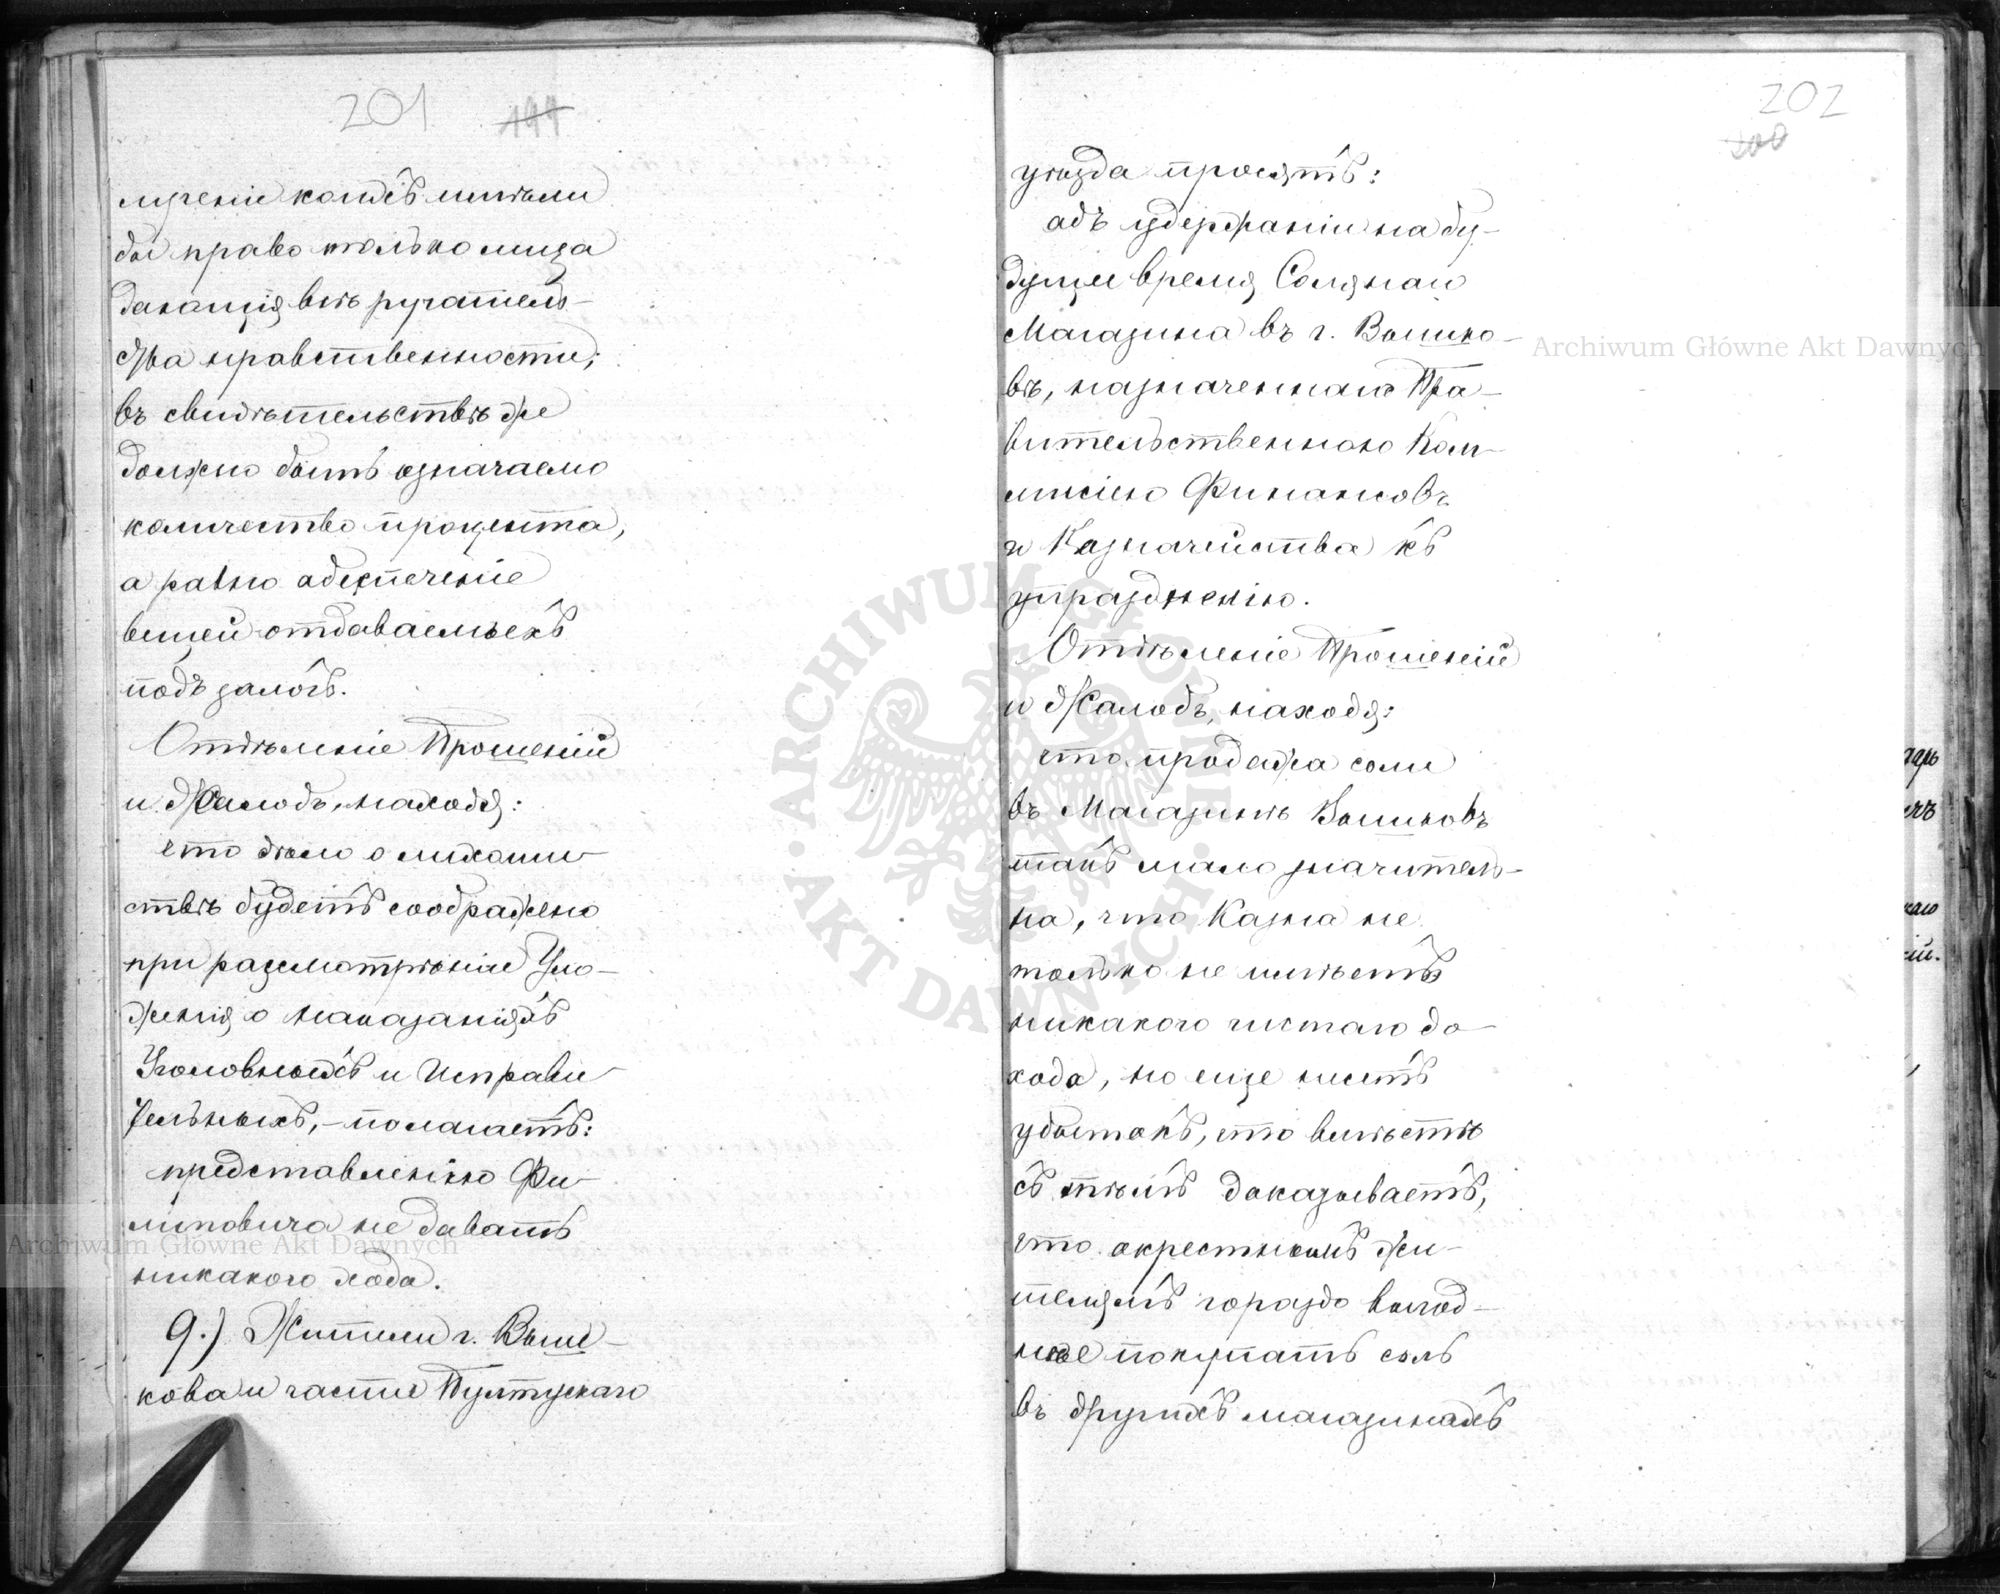 201 199
лученіе коихъ имѣли
бы право только лица
дающія всѣ ручатель-
ства нравственности;
въ свидѣтельствѣ же
должно быть означаемо
количество процента,
а равно обезпеченіе
вещей отдаваемыхъ
подъ залогъ.
Отдѣленіе Прошеній
и Жалобъ, находя:
что дѣло о лихоим-
ствѣ будетъ соображено
при разсмотрѣніи Уло-
женія о наказаніяхъ
Уголовныхъ и Исправи-
тельныхъ, - полагаетъ:
представленію Фи-
липовича не давать
никакого хода.
9.) Жители г. Выш-
кова и части Пултускаго
202
200
уѣзда просятъ:
объ удержаніи на бу-
дущее время Соляного
Магазина въ г. Вышко-
вѣ, назначеннаго Пра-
вительственною Ком-
мисіею Финансовъ
и Казначейства къ
упраздненію.
Отдѣленіе Прошеній
и Жалобъ, находя:
что продажа соли
въ Магазинѣ Вышковъ
такъ мало значитель-
на, что Казна не
только не имѣетъ
никакого чистаго до-
хода, но еще несетъ
убытокъ, что вмѣстѣ
съ тѣмъ доказываетъ,
что окрестнымъ жи-
телямъ гораздо выгод-
нѣе покупать соль
въ другихъ магазинахъ
Archiwum Główne Akt Dawnych
Archiwum Główne Akt Dawnych
ARCHIWUM GŁÓWNE AKT DAWNYCH